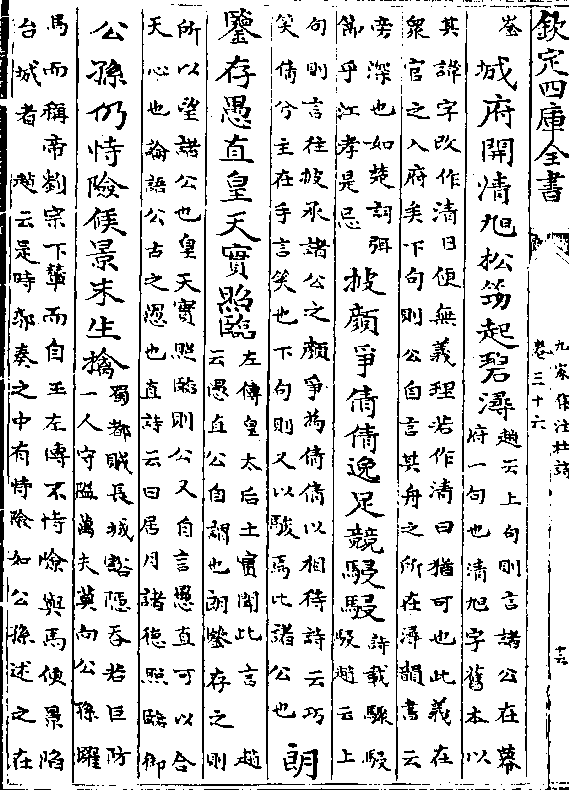 欽定四庫全書
九家集注杜詩
卷三十六
岑
城府開清旭松筠起碧潯
趙云上句則言諸公在幕
府一句也清旭字舊本以
其諱字改作清日便無義理若作清曰猶可也此義在
眾官之入府矣下句則公自言其舟之所在潯韻書云
旁深也如楚詞弭
節乎江孝是忌
披顔爭倩倩逸足競駸駸
詩載驟駸
駸趙云上
句則言往披承諸公之顔爭為倩倩以相待詩云巧
笑倩兮主在手言笑也下句則又以駿馬比諸公也
朗
鑒存愚直皇天實照臨
左傳皇太后土實聞此言 趙
云愚直公自謂也朗鑒存之則
所以望諸公也皇天實照臨則公又自言愚直可以合
天心也論語公古之愚也直詩云曰居月諸德照臨御
公孫仍恃險侯景未生擒
蜀都賦長城豁險吞若巨防
一人守隘萬夫莫向公孫躍
馬而稱帝劉宗下輦而自王左傳不恃險與馬使景陷
台城者趙云是時郊奏之中有恃險如公孫述之在